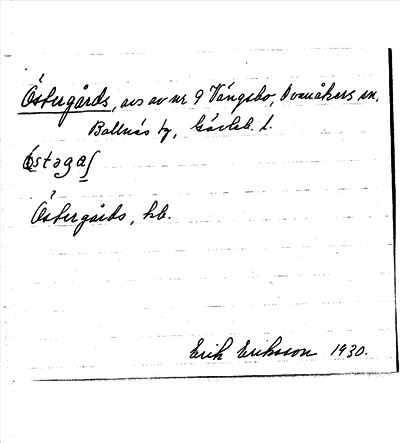 Östergårds, avs av nr 9 Vängsbo, Ovanåkers sn,
Bollnäs tg, Gävleb. l.
östagaʃ
Östergårds, hb.
Erik Eriksson 1930.